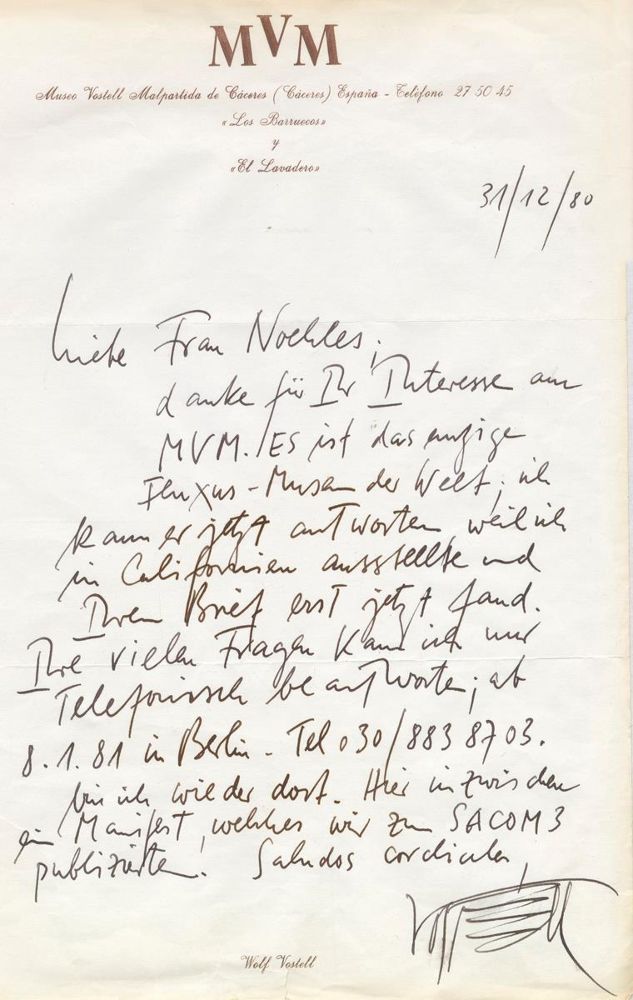 MVM
Museo Vostell Malpartida de Cáceres (Cáceres) España - Teléfono 27 50 45
«Los Barruecos»
y
«El Lavadero»
31/12/80
Liebe Frau Noehles,
danke für Ihr Interesse am
MVM. Es ist das einzige
Fluxus-Museum der Welt; ich
kann erst jetzt antworten, weil ich
in Californien ausstellte und
Ihren Brief erst jetzt fand.
Ihre vielen Fragen kann ich nur
Telefonisch beantworten; ab
8.1.81 in Berlin - Tel 030/883 8703.
bin ich wieder dort. Hier inzwischen
ein Manifest, welches wir zu SACOM3
publizierten. Saludos cordiales,
Vostell
Wolf Vostell